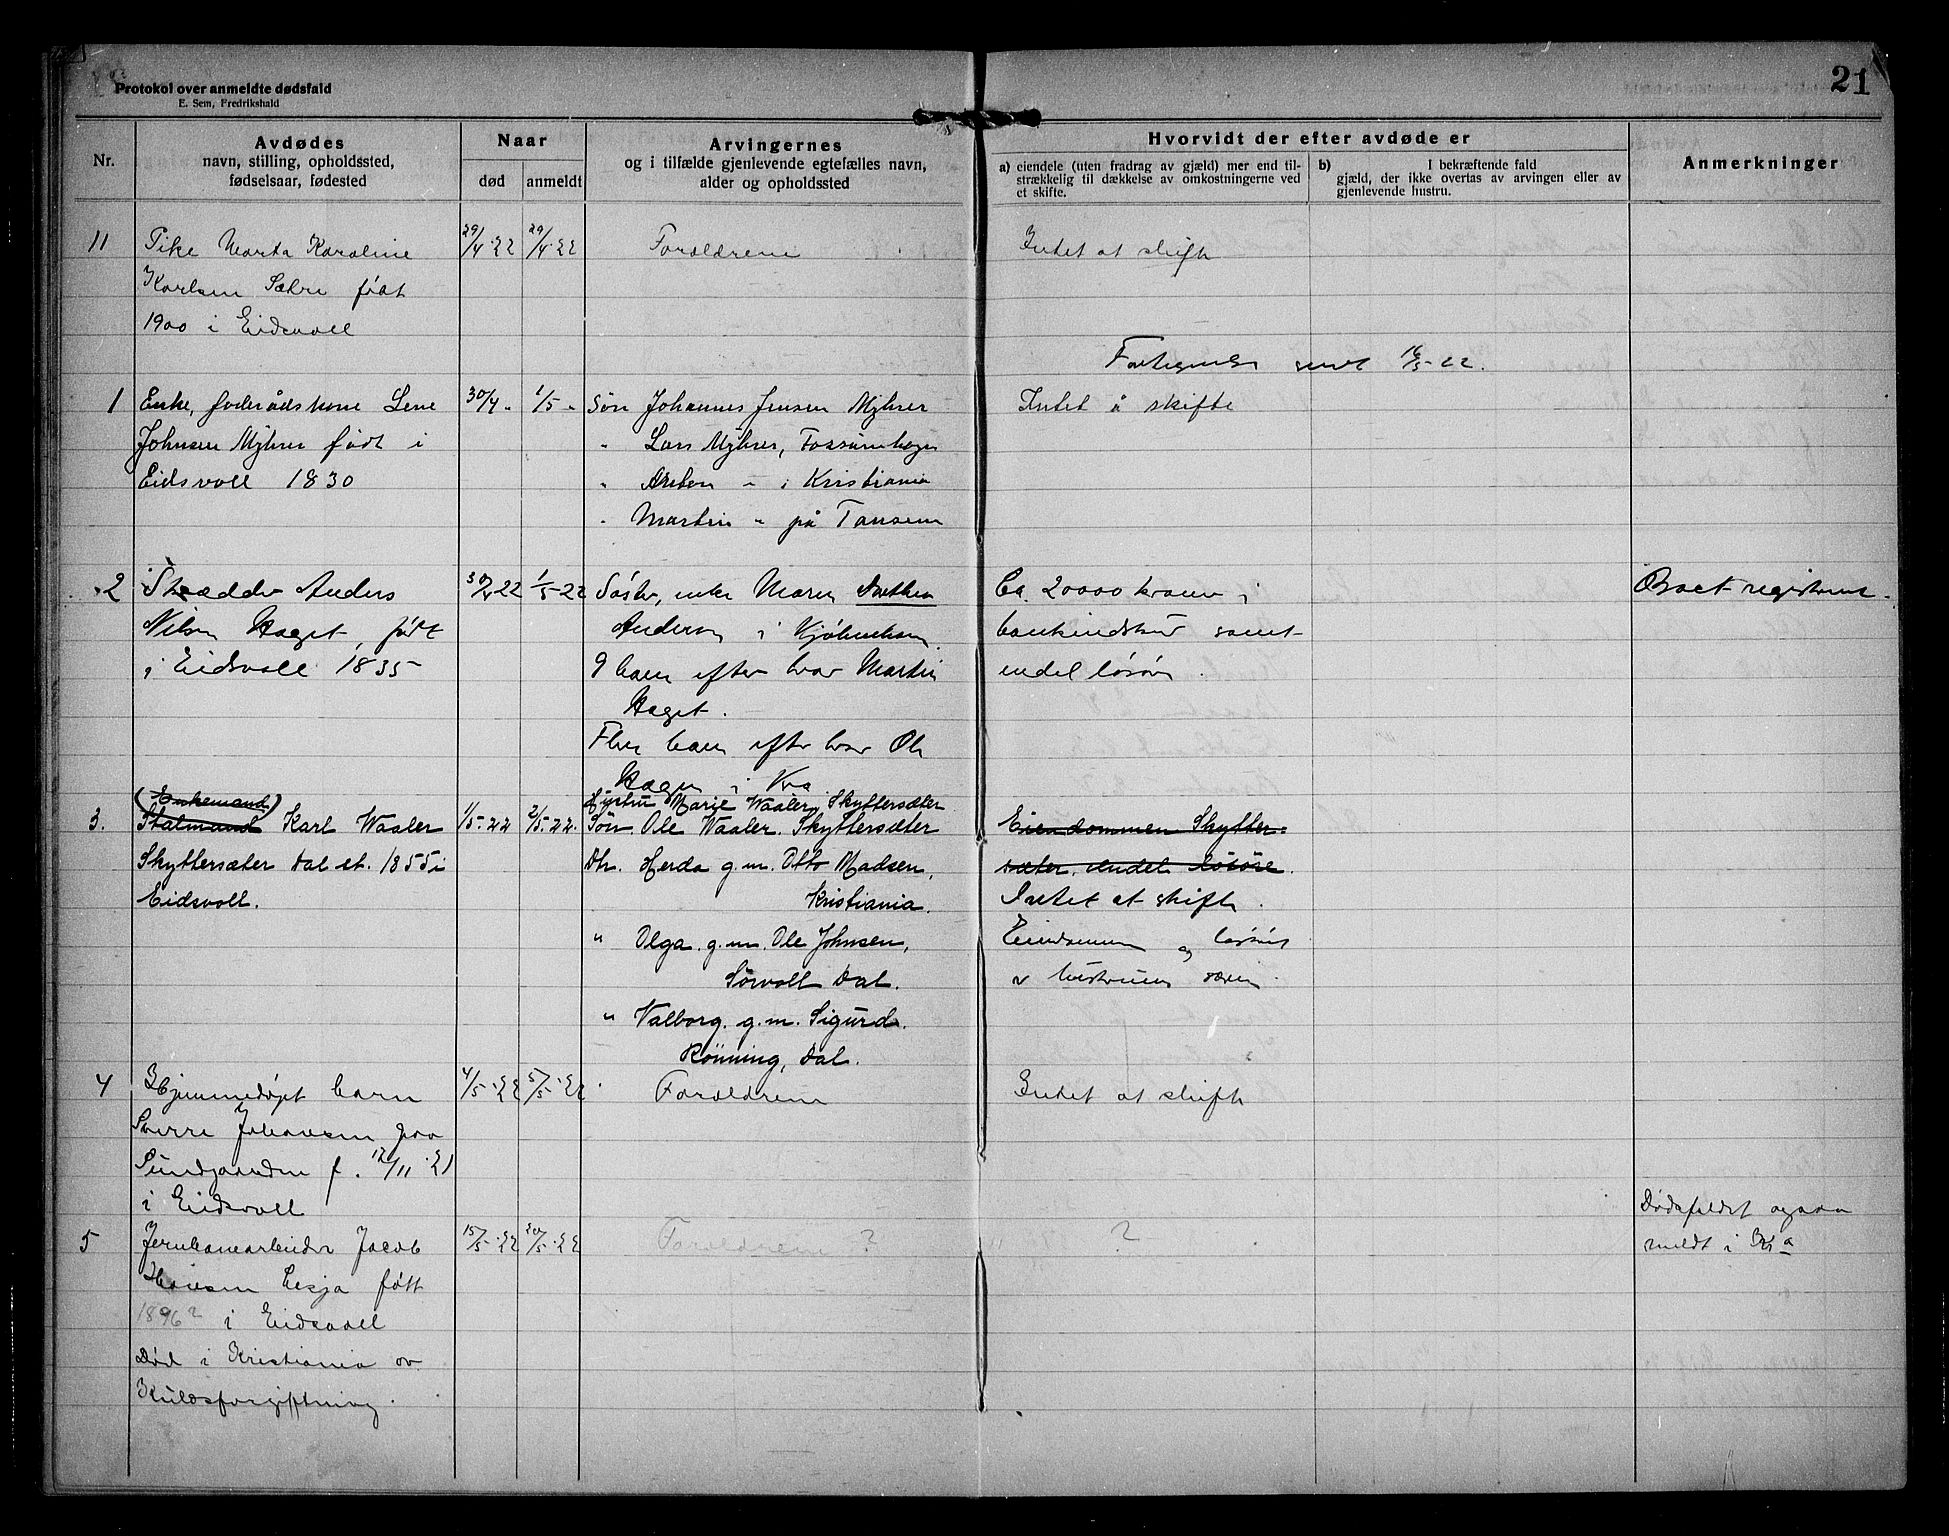 Protokol over anmeldte dødsfald
E. Sem, Fredrikshald
21
Nr.
Avdødes
navn, stilling, opholdssted,
fødselsaar, fødested
Naar
død
anmeldt
Arvingernes
og i tilfælde gjenlevende egtefælles navn,
alder og opholdssted
Hvorvidt der efter avdøde er
a) eiendele (uten fradrag av gjæld) mer end til-
strækkelig til dækkelse av omkostningerne ved
et skifte.
b) I bekræftende fald
gjæld, der ikke overtas av arvingen eller av
gjenlevende hustru.
Anmerkninger
11
Pike Marta Karoline
Karlsen Sæhre født
1900 i Eidsvoll
29/4-22
29/4-22
Forældrene
Intet at skifte
Fortegnelse sendt 16/5-22.
1
Enke, foderådskone Lene
Johnsen Myhrer født i
Eidsvoll 1830
30/4 "
1/5 "
Søn Johannes Jensen Myhrer
" Lars Myhrer, Fossumhagen
" Anton " i Kristiania
" Martin " på Tansem
Intet å skifte
2
Skrædder Anders
Nilsen Haget, født
i Eidsvoll 1835
30/4 22
1/5-22
Søster, enke Maren Dorthea
Andersen i Kjøbenhavn.
9 barn efter bror Martin
Haget.
Flere barn efter bror Ole
Hagen i Kra
Ca. 20000 kroner i
bankindskud samt
endel løsøre.
Boet registreret.
3.
(Enkemand)
Stalmand Karl Waaler
Skyttersæter Dal st. 1855 i
Eidsvoll.
1/5-22
2/5-22.
Hustru Marie Waaler, Skyttersæter
Søn Ole Waaler. Skyttersæter
Dtr. Herda g.m. Otto Madsen,
Kristiania.
" Olga. g.m. Ole Johnsen,
Sørvoll Dal.
" Valborg. g.m. Sigurd.
Rønning, Dal.
Eiendommen Skytter-
sæter. endel løsøre.
Intet at skifte.
Eiendommen og løsøre
er hustruens særeie.
4
Hjemmedøpt barn
Sverre Johansen paa
Sundgaarden f. 12/11-21
i Eidsvoll
4/5-22
5/5-22
Forældrene
Intet at skifte
5
Jernbanearbeider Jacob
Hansen Lesja født
1896? i Eidsvoll
Død i Kristiania av
Kulosforgiftning.
15/5-22
20/5-22
Forældrene ?
?
Dødsfaldet ogsaa
meldt i Kra